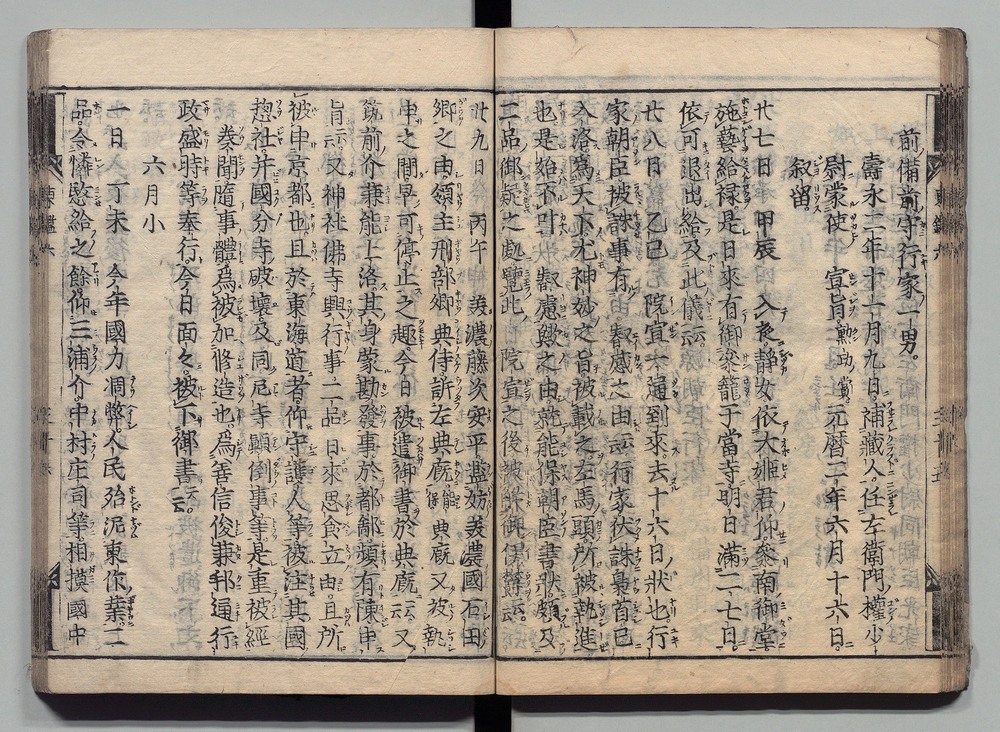 前備前守行家一男。
壽永二年十二月九日。補藏人。任左衛門權少
尉。蒙使　宣旨。勲功賞。元暦二年六月十六日。
叙留。
廿七日　甲辰　入夜靜女依大姫君仰。參南御堂
施藝給禄。是日來有御參籠于當寺。明日滿二七日。
依可退出給及此儀云云
廿八日　乙巳　院宣一通到來。去十六日狀也。行
家朝臣被誅事有　睿感之由云云。行家伏誅梟首已
入洛。爲天下尤神妙之旨被載之。左馬頭所被執進
也。是始不叶　叡慮歟之由。就能保朝臣書狀。頗及
二品御疑之處。覽此　院宣之後被
廿九日　丙午　美濃藤次安平濫妨美濃國石田
郷之由。領主刑部卿典侍訴左典厩能保。典厩又被執
申之間。早可停止之趣。今日被遣御書於典厩云云。又
筑前介兼能上洛。其身蒙勘發事。於都鄙頻有陳申
旨云云。又神社佛寺興行事。二品日來思食立由。且所
被申京都也。且於東海道者。仰守護人等。被注其國
惣社并國分寺破壞。及同尼寺顛倒事等。是重被經
奏聞。隨事體。爲被加修造也。爲善信。俊兼。邦通。行
政。盛時等奉行。今日面々。被下御書云云。
六月小
一日　丁未　今年國力凋弊。人民殆泥東作業。二
品令憐愍給之餘。仰三浦介。中村庄司等。相摸國中
東鑑六